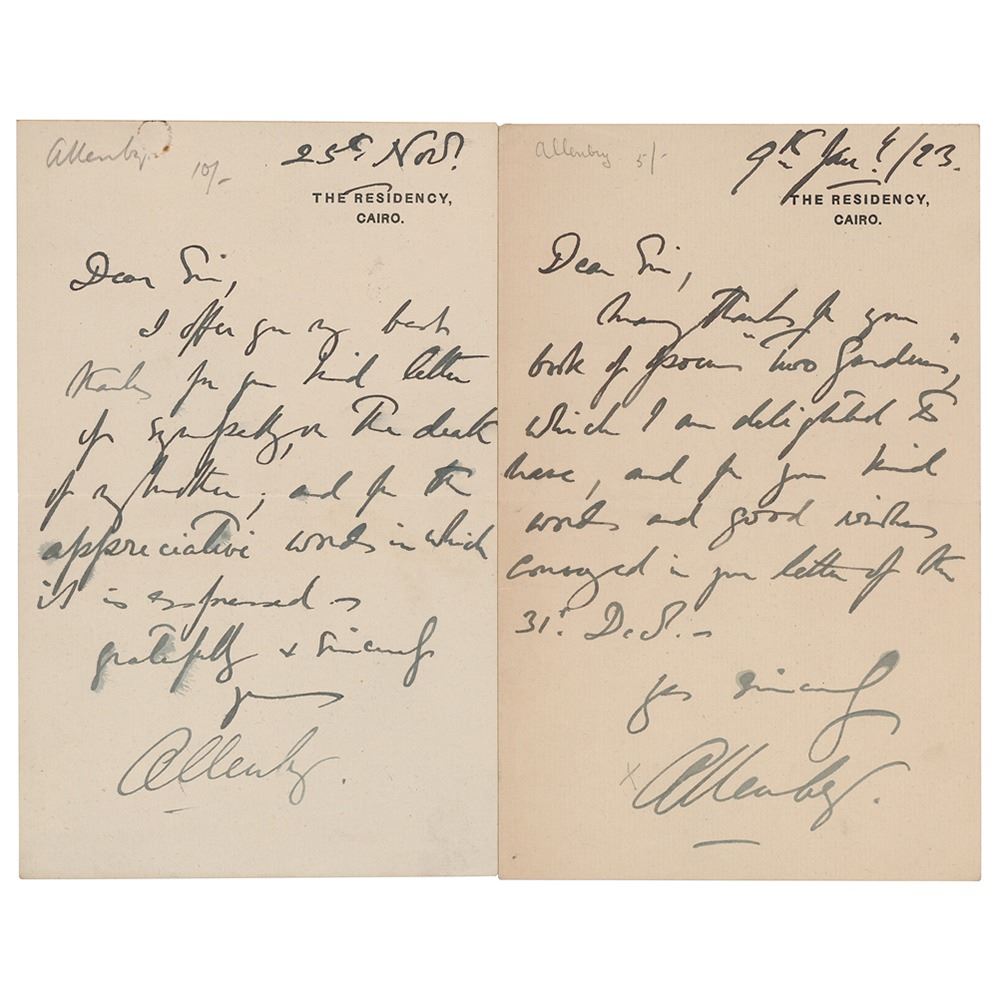 Allenby
10/-
25th Novr.
THE RESIDENCY,
CAIRO.
Dear Sir,
I offer you my best
thanks for your kind letter
of sympathy, on the death
of my mother; and for the
appreciative words in which
it is expressed.
gratefully & sincerely
yours
Allenby.
Allenby 5/-
9th Jany/23.
THE RESIDENCY,
CAIRO.
Dear Sir,
Many thanks for your
book of poems "Two Gardens",
which I am delighted to
have, and for your kind
words and good wishes
conveyed in your letter of the
31st Decr. -
yrs sincerely
x Allenby.